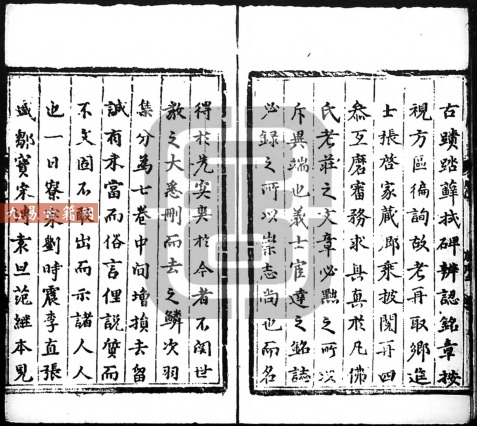 古蹟踏蘚拭碑辨誌銘章按
視方區徧詢故考再取鄉進
士張啓家藏郡乘披閱再四
叅互磨審務求具真於凡佛
氏老莊之文章必黜之所以
斥異端也義士宦達之銘誌
必錄之所以崇志尚也而名
得於先實與於今者不関世
教之大悉刪而去之鱗次羽
集分為七卷中間增損去留
誠有未當而俗言俚説質而
不文固不敢出而示諸人人
也一日寮寀劉時震李直張
盛鄒寳宋博袁旦范継本見